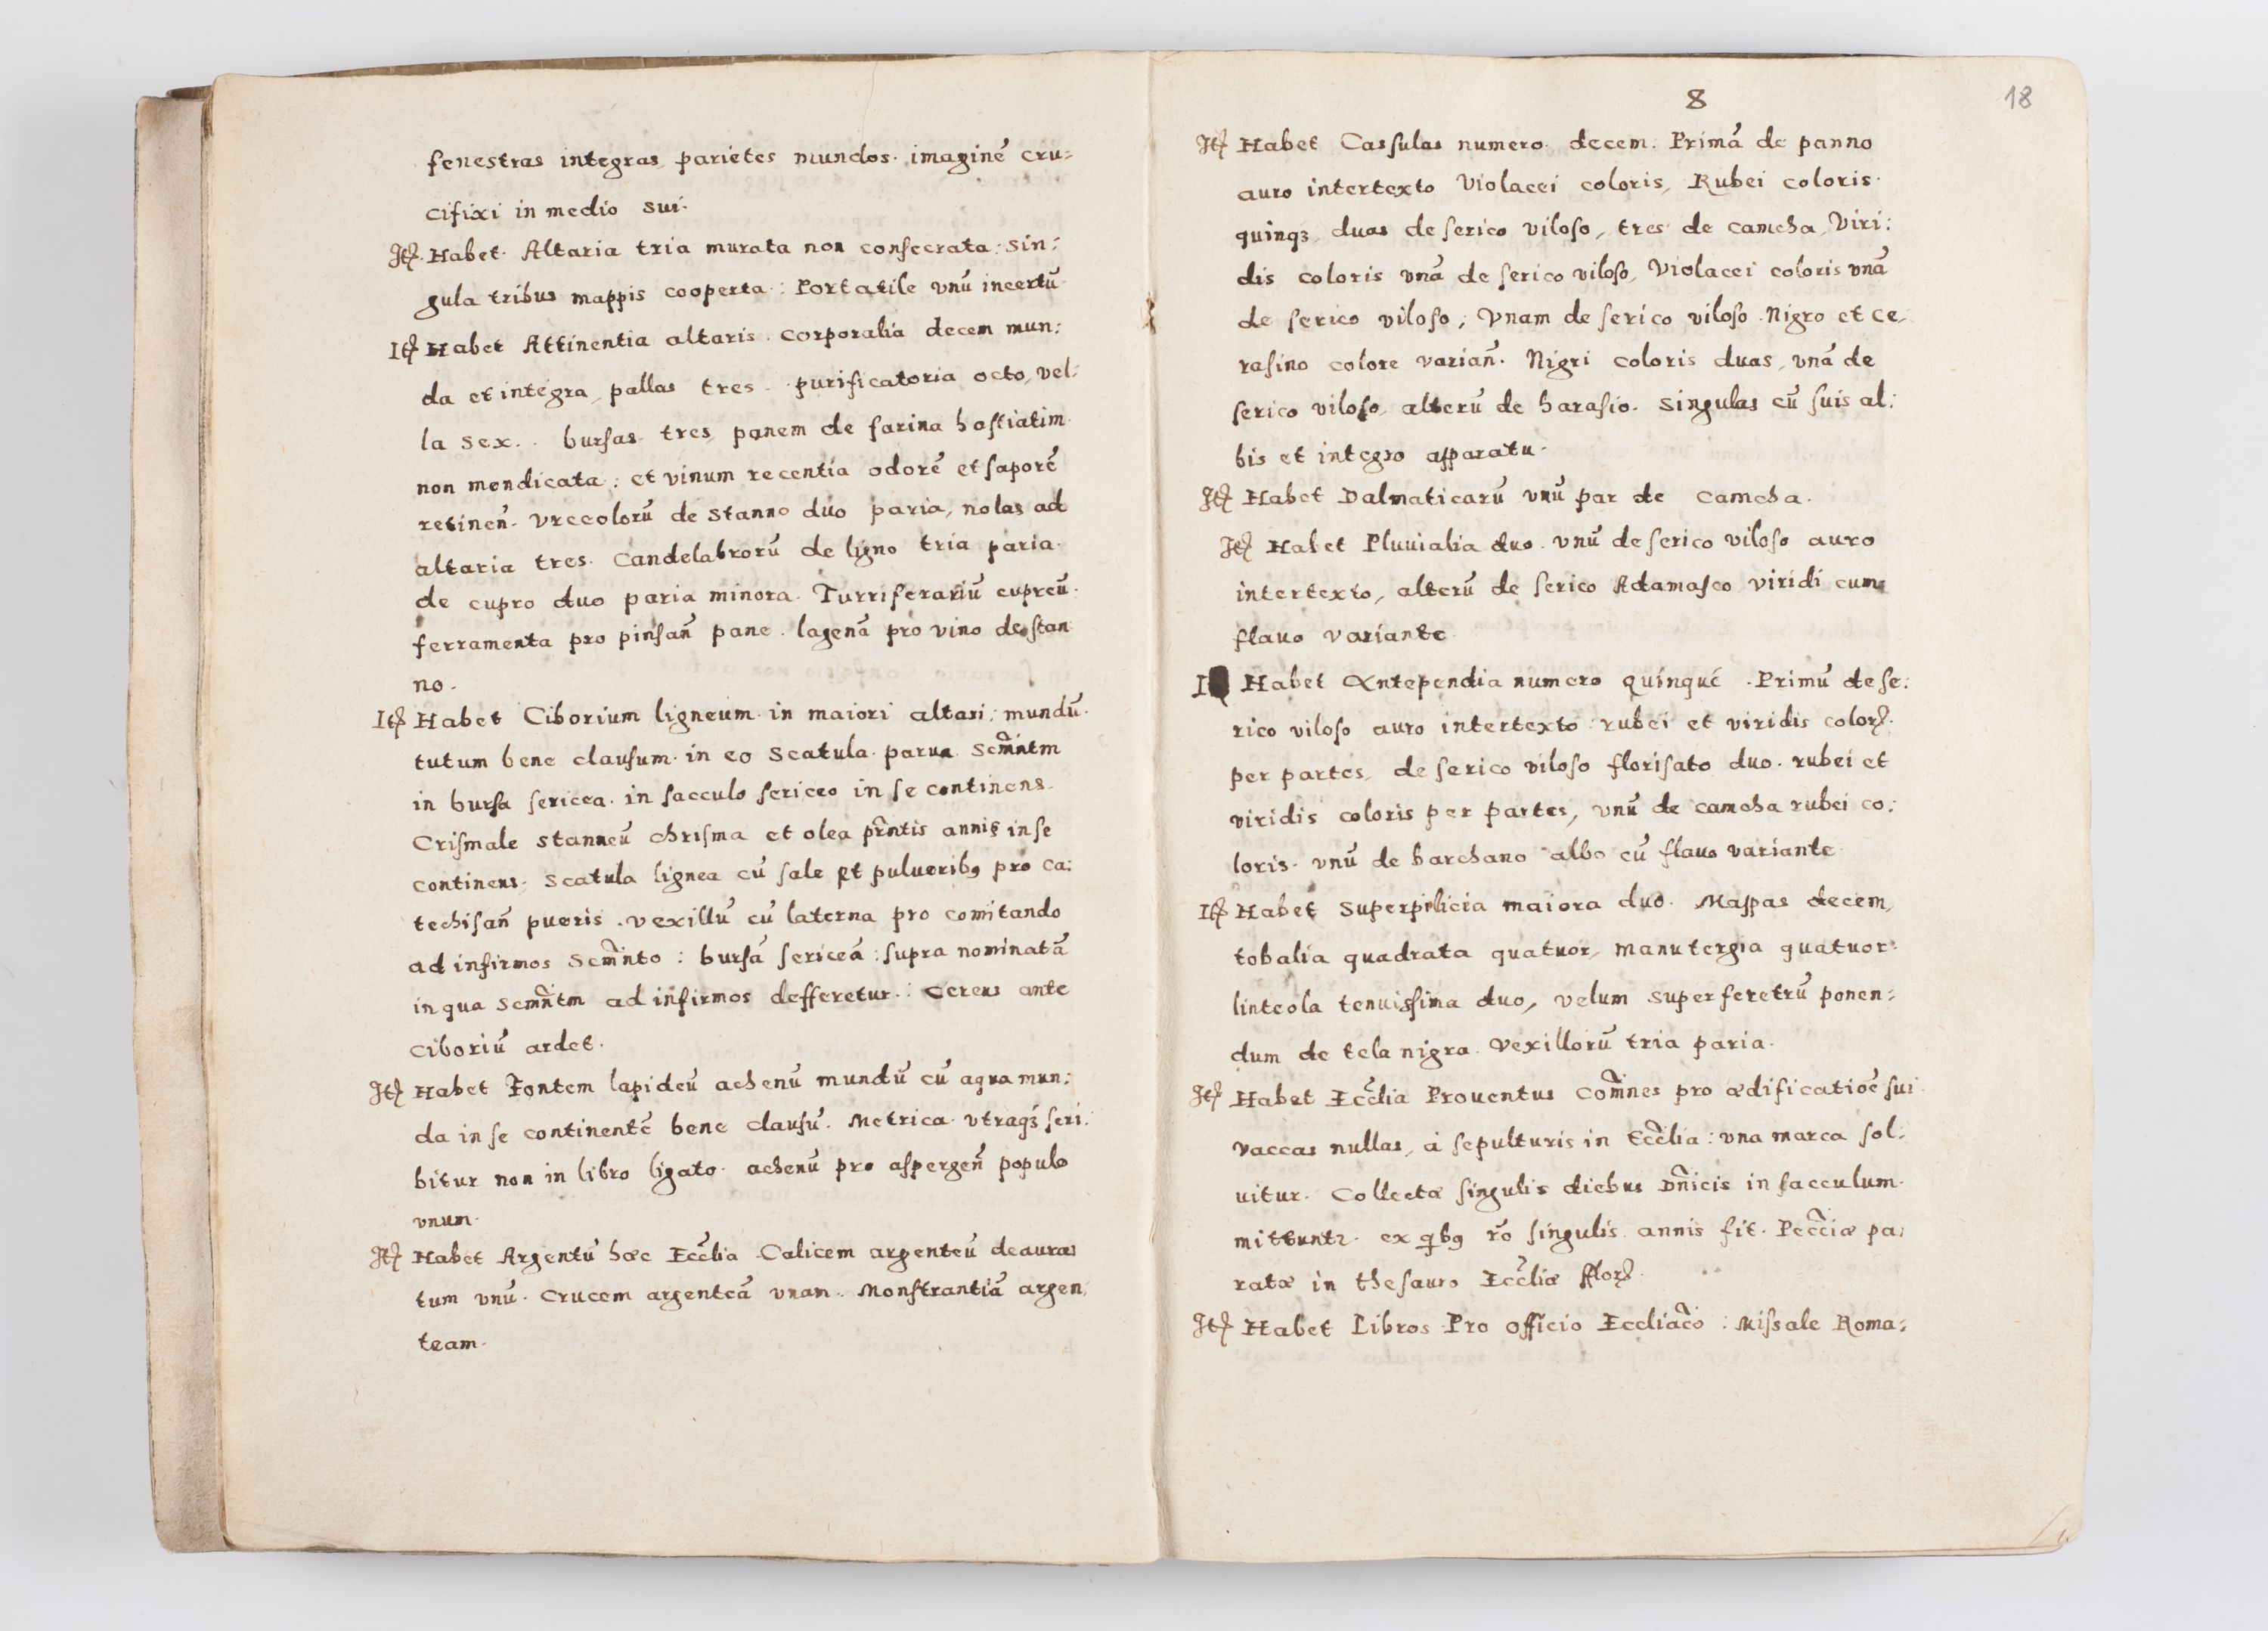 fenestras integras parietes mundos. imaginẽ cru=
cifixi in medio sui.
Itꝫ. Habet. Altaria tria murata non consecrata: sin:
gula tribus mappis cooperta: Portatile vnũ incertũ.
Itꝫ Habet Attinentia altaris. Corporalia decem mun:
da et integra, pallas tres. purificatoria octo, vel:
la sex. bursas tres, panem de farina hostiatim
non mendicata: et vinum recentia odorẽ et saporẽ
retineñ. Vrceolorũ de stanno duo paria, nolas ad
altaria tres. Candelabrorũ de ligno tria paria.
de cupro duo paria minora. Turriferariũ cupreũ.
ferramenta pro pinsañ pane. lagenã pro vino de stan
no.
Itꝫ Habet Ciborium ligneum. in maiori altari: mundũ.
tutum bene clausum. in eo Scatula parua Scm̃ntm
in bursa sericea. in sacculo sericeo in se continens.
Crismale stanneũ chrisma et olea pr̃ntis annis in se
continens. Scatula lignea cũ sale et pulueribꝰ pro ca:
techisañ pueris. vexillũ cũ laterna pro comitando
ad infirmos Scm̃nto: bursã sericeã: supra nominatã
in qua Scm̃ntm ad infirmos defferetur. Cereus ante
Ciboriũ ardet.
Itꝫ Habet Fontem lapideũ achenũ mundũ cũ aqua mun:
da in se continentẽ bene clausũ. Metrica vtraqꝫ scri:
bitur non in libro ligato. achenũ pro aspergeñ populo
vnum.
Itꝫ Habet Argentũ hæc Eccl̃ia. Calicem argenteũ deaura:
tum vnũ. Crucem argenteã vnam. Monstrantiã argen:
team.
8
18
Itꝫ Habet Cassulas numero decem. Primã de panno
auro intertexto Violacei coloris, Rubei coloris
quinqꝫ, duas de serico viloso, tres de camcha, Viri:
dis coloris vnã de serico viloso, Violacei coloris vnã
de serico viloso, Vnam de serico viloso Nigro et ce:
rasino colore variañ. Nigri coloris duas, vnã de
serico viloso, alterũ de harasio. Singulas cũ suis al:
bis et integro apparatu.
Itꝫ Habet Dalmaticarũ vnũ par de camcha.
Itꝫ Habet Pluuialia duo. vnũ de serico viloso auro
intertexto, alterũ de serico Adamasco viridi cum
flauo variante
Habet Antependia numero quinque. Primũ de se:
rico viloso auro intertexto rubei et viridis colorꝫ.
per partes, de serico viloso florisato duo. rubei et
viridis coloris per partes, vnũ de camcha rubei co:
loris. vnũ de barchano albo cũ flauo variante
Itꝫ Habet Superpilicia maiora duo. Mappas decem,
tobalia quadrata quatuor, manutergia quatuor.
linteola tenuissima duo, velum super feretrũ ponen:
dum de tela nigra. Vexillorũ tria paria.
Itꝫ Habet Eccl̃ia Prouentus Com̃nes pro ædificatiõe sui
vaccas nullas, à sepulturis in Eccl̃ia: vna marca sol:
uitur. Collectæ singulis diebus Dñicis in sacculum
mittuntꝛ. ex qbꝰ rõ singulis annis fit. Pecc̃iæ pa:
ratæ in thesauro Eccl̃iæ fflorꝫ.
Itꝫ Habet Libros Pro officio Eccliac̃o: Missale Roma: